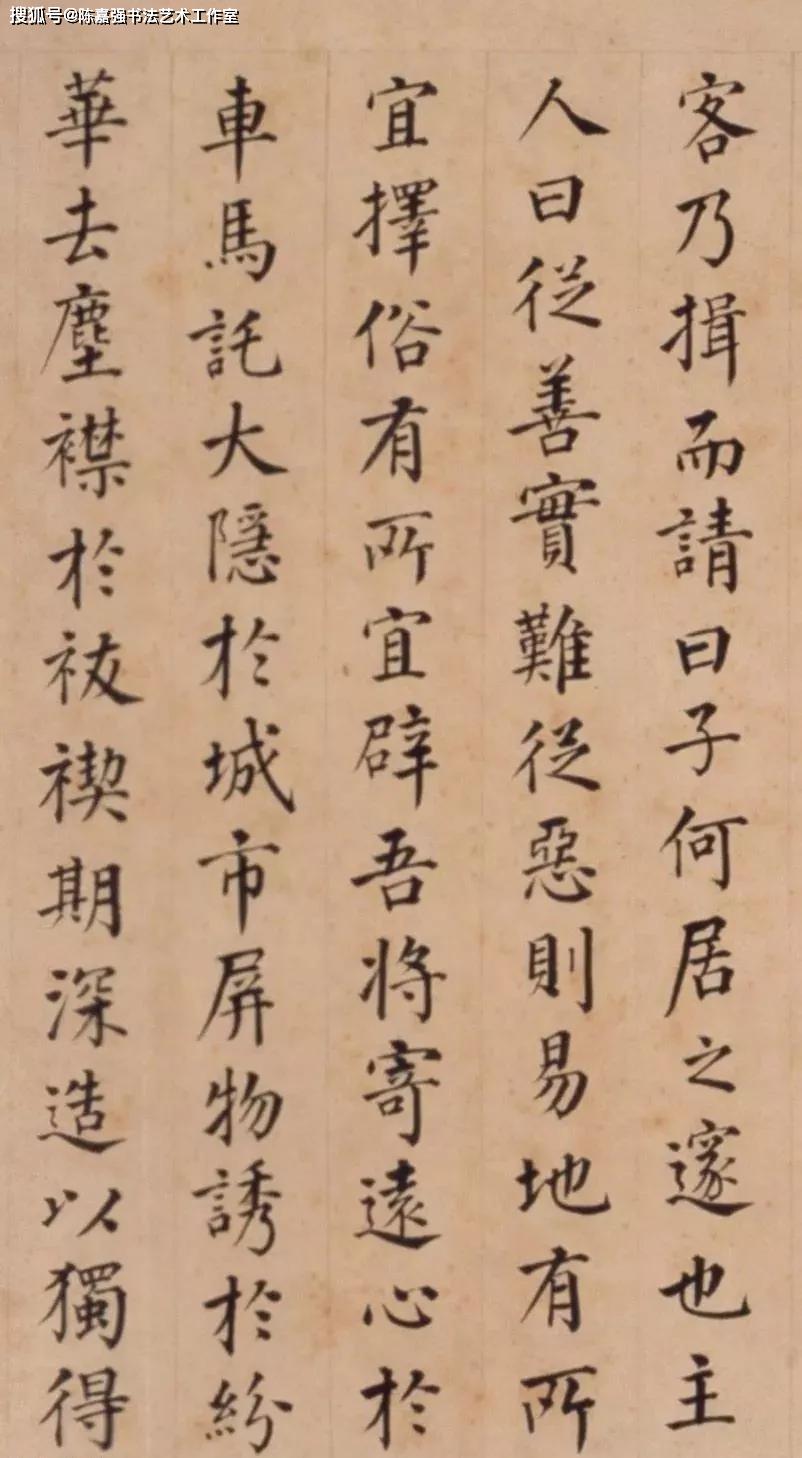 搜狐号@陈嘉强书法艺术工作室
客乃揖而請曰子何居之邃也主
人曰從善實難從惡則易地有所
宜擇俗有所宜辟吾將寄遠心於
車馬託大隱於城市屏物誘於紛
華去塵襟於祓禊期深造以獨得